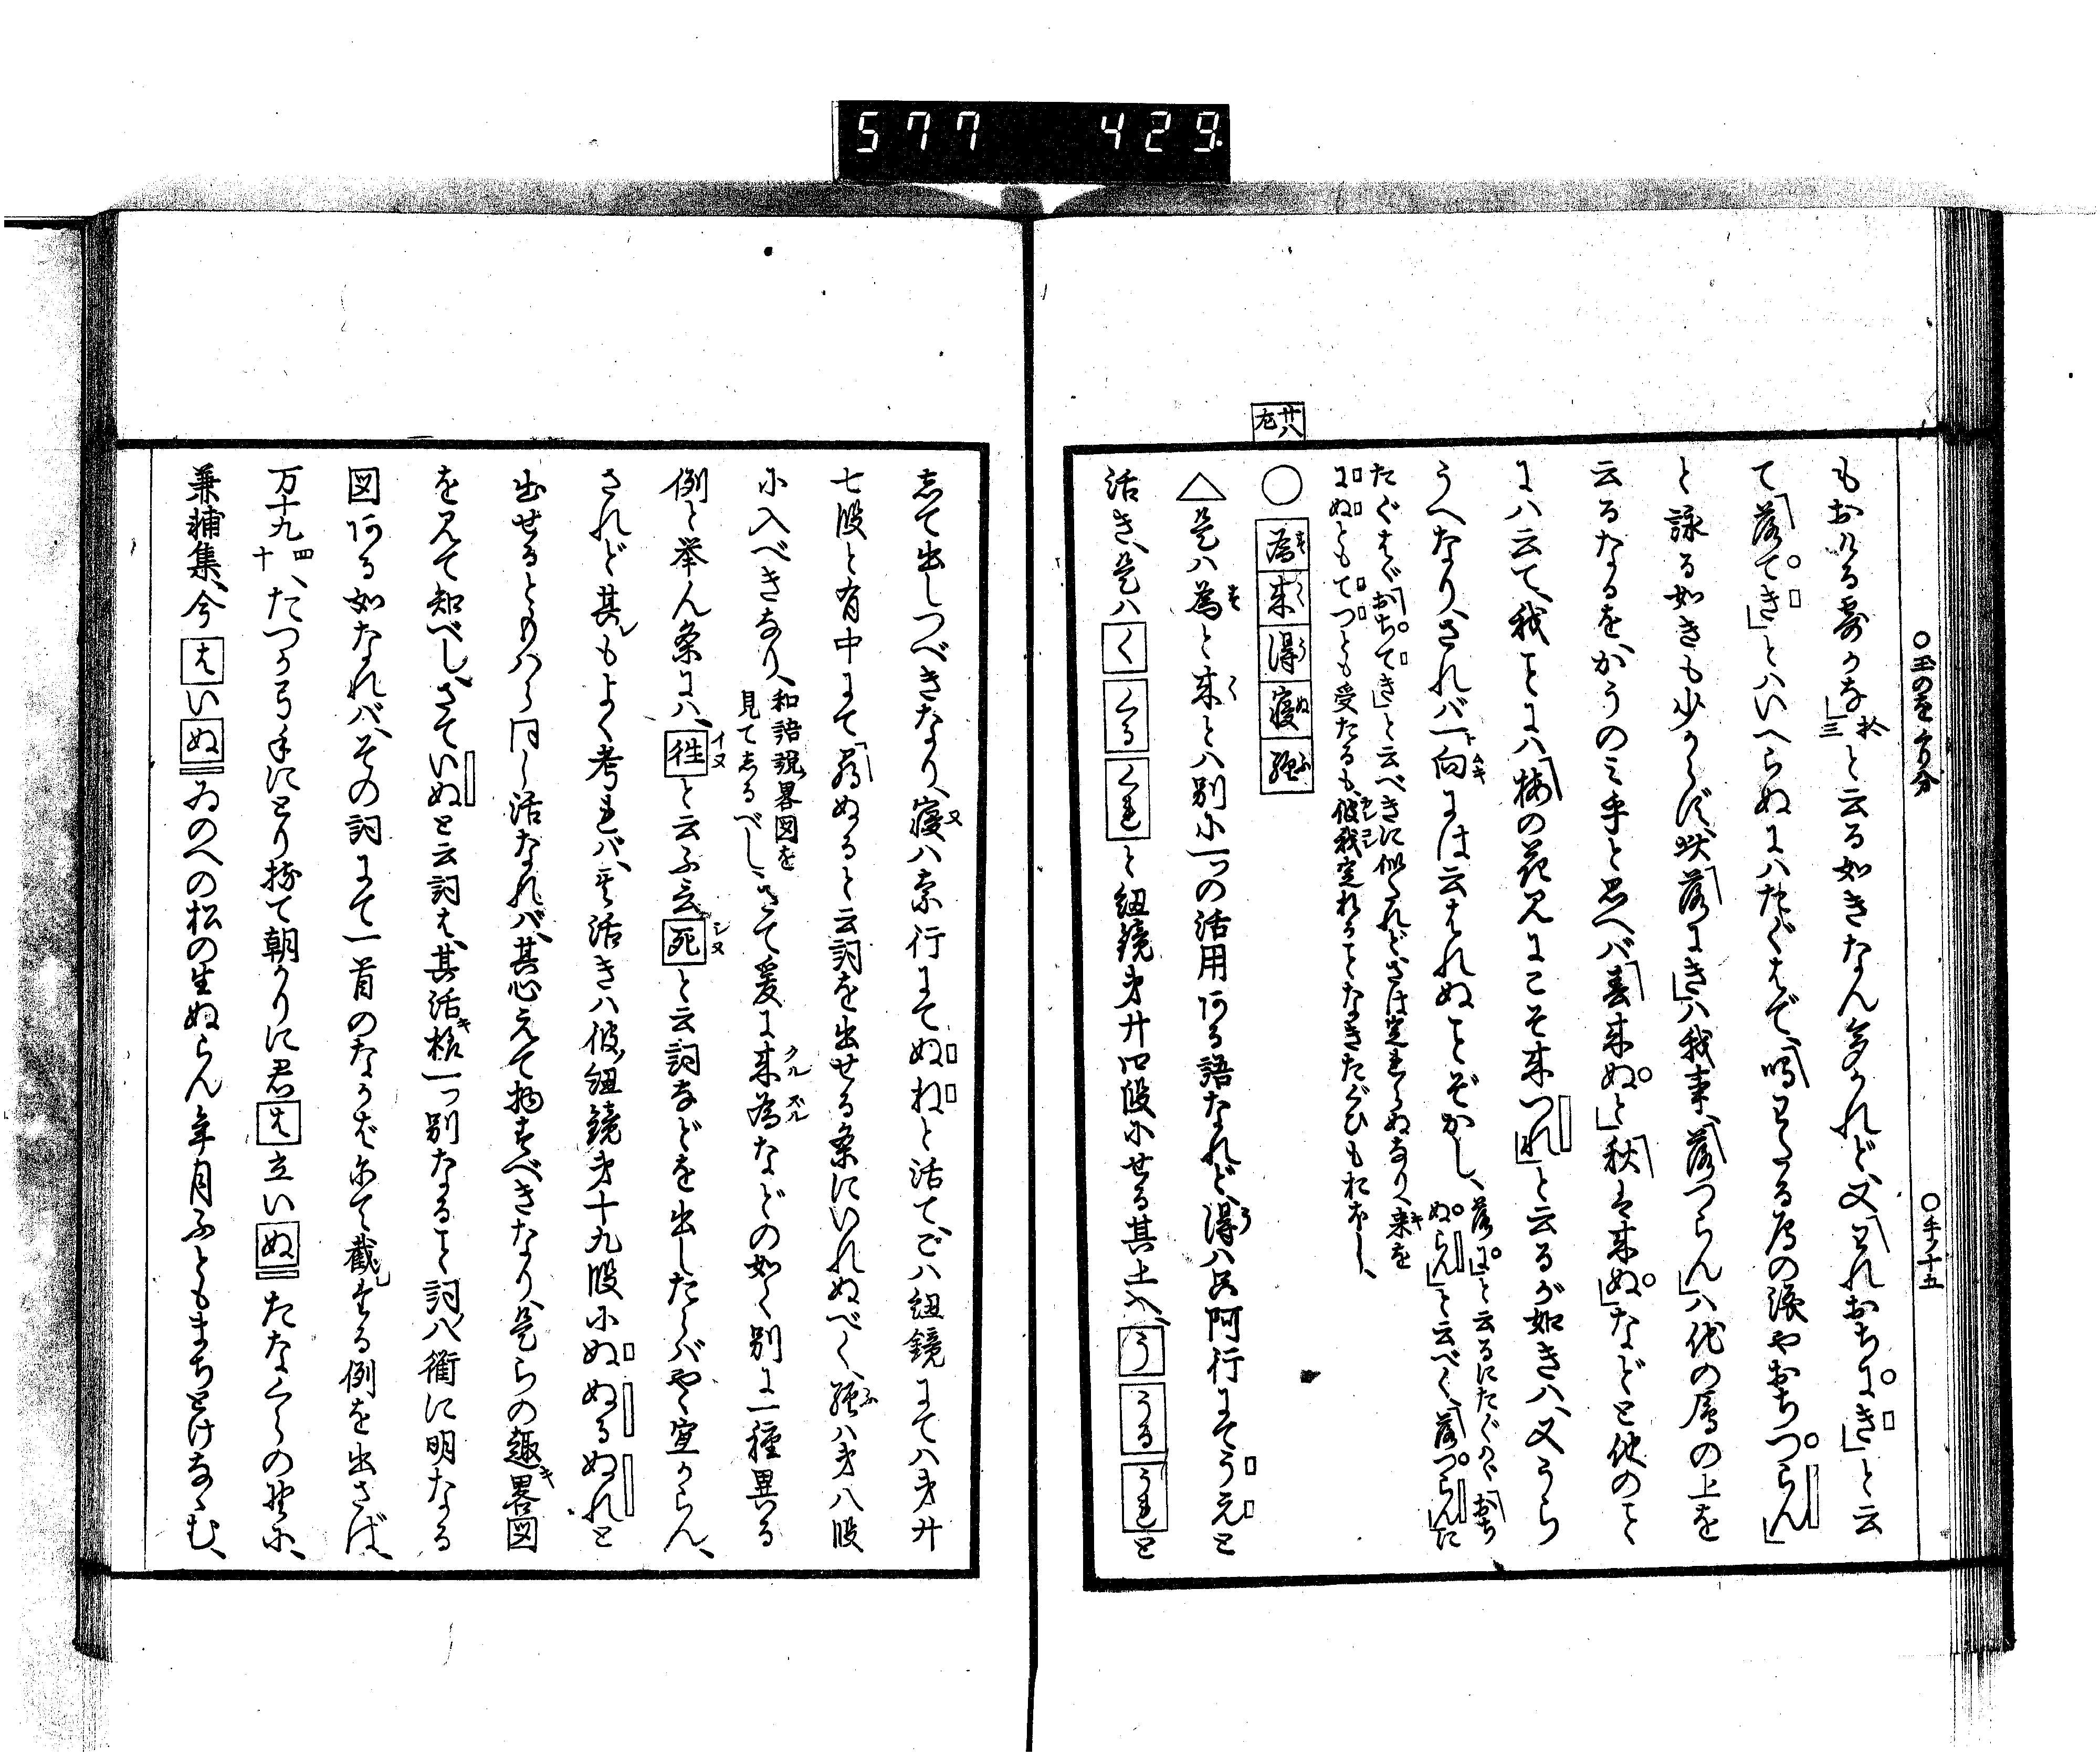 577 429
○玉のをくり分 ○手ノ十五
もおける哥かな」と云る如きなん多かれど、又「これおちにき」と云
て「落てき」とハいへらぬにハたぐはで、「鳴わたる鳫の涙やおちつらん」
と詠る如きも少からず、「落にき」ハ我事、「落つらん」ハ他の鳫の上を
云るなるを、かうのミ手と思へバ「春来ぬと」「秋は来ぬ」などと他のこと
にハ云て、我ことにハ「梅の花見にこそ来つれ」と云るが如きハ、又うら
うへなり、されバ一向には云はれぬことぞかし、
「落に」と云るにたぐへバ「おち
ぬらん」と云べく、「落つらん」た
たぐはゞ「おちてき」と云べきに似たれど、さは定まらぬなり、来を
にぬともてつとも受たるも、彼我定れることなきたぐひもおほし、
廿八 左
○ 為 来 得 寝 経
△是ハ為と来とハ別に一つの活用ある語なれど、得ハ阿行にてうえと
活き、是ハくくるくれと紐鏡第廿四段にせる其上へ、うううるうれと
して出しつべきなり、寝ハ奈行にてぬねと活て、こハ紐鏡にてハ第廿
七段と有中にて「尋ぬると云詞を出せる条にいれぬべく、経ハ第八段
に入べきなり、
和語説畧図を
見てしるべし
さて爰に来為などの如く別に一種異る
例と挙ん条にハ、往と云ふ言死と云詞などを出したらバやゝ宜からん、
されど其もよく考れバ、其活きハ彼紐鏡第十九段にぬぬるぬれと
出せるとのハら同じ活なれバ、其心えて物すべきなり、是らの趣畧図
を見て知べし、さていぬと云詞は、其活格一つ別なること詞八衢に明なる
図ある如なれバ、その詞にて一首のなからにて截したる例を出さば、
万十九 四十 たつか弓手にとり持て朝かりに君は立いぬたなくらの野に、
兼輔集、今はいぬゐのへの松の生ぬらん年月ふともまちとけなゝむ、